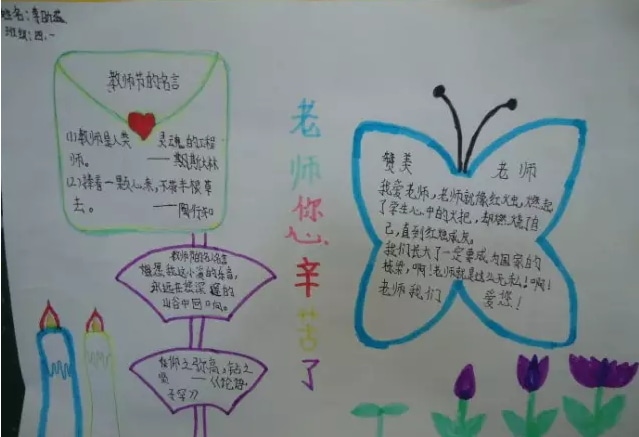 姓名:李
班级:四.一
教师节的名言
(1)教师是人类 灵魂的工程
师。 ——斯大林
(2)捧着一颗心来,不带半根草
去。 ——陶行知
老师你心辛苦了
教师节的名人名言
我这小溪的乐音,
永远在您深邃的
山谷中回响。
仰之弥高,钻之
坚 ——《论语·
子罕》
赞美 老师
我爱老师,老师就像红烛,燃起
了学生心中的火把,却燃烧了自
己,直到红烛成灰。
我们长大了一定要成为国家的
栋梁,啊!老师就是这么无私!啊!
老师我们 爱您!